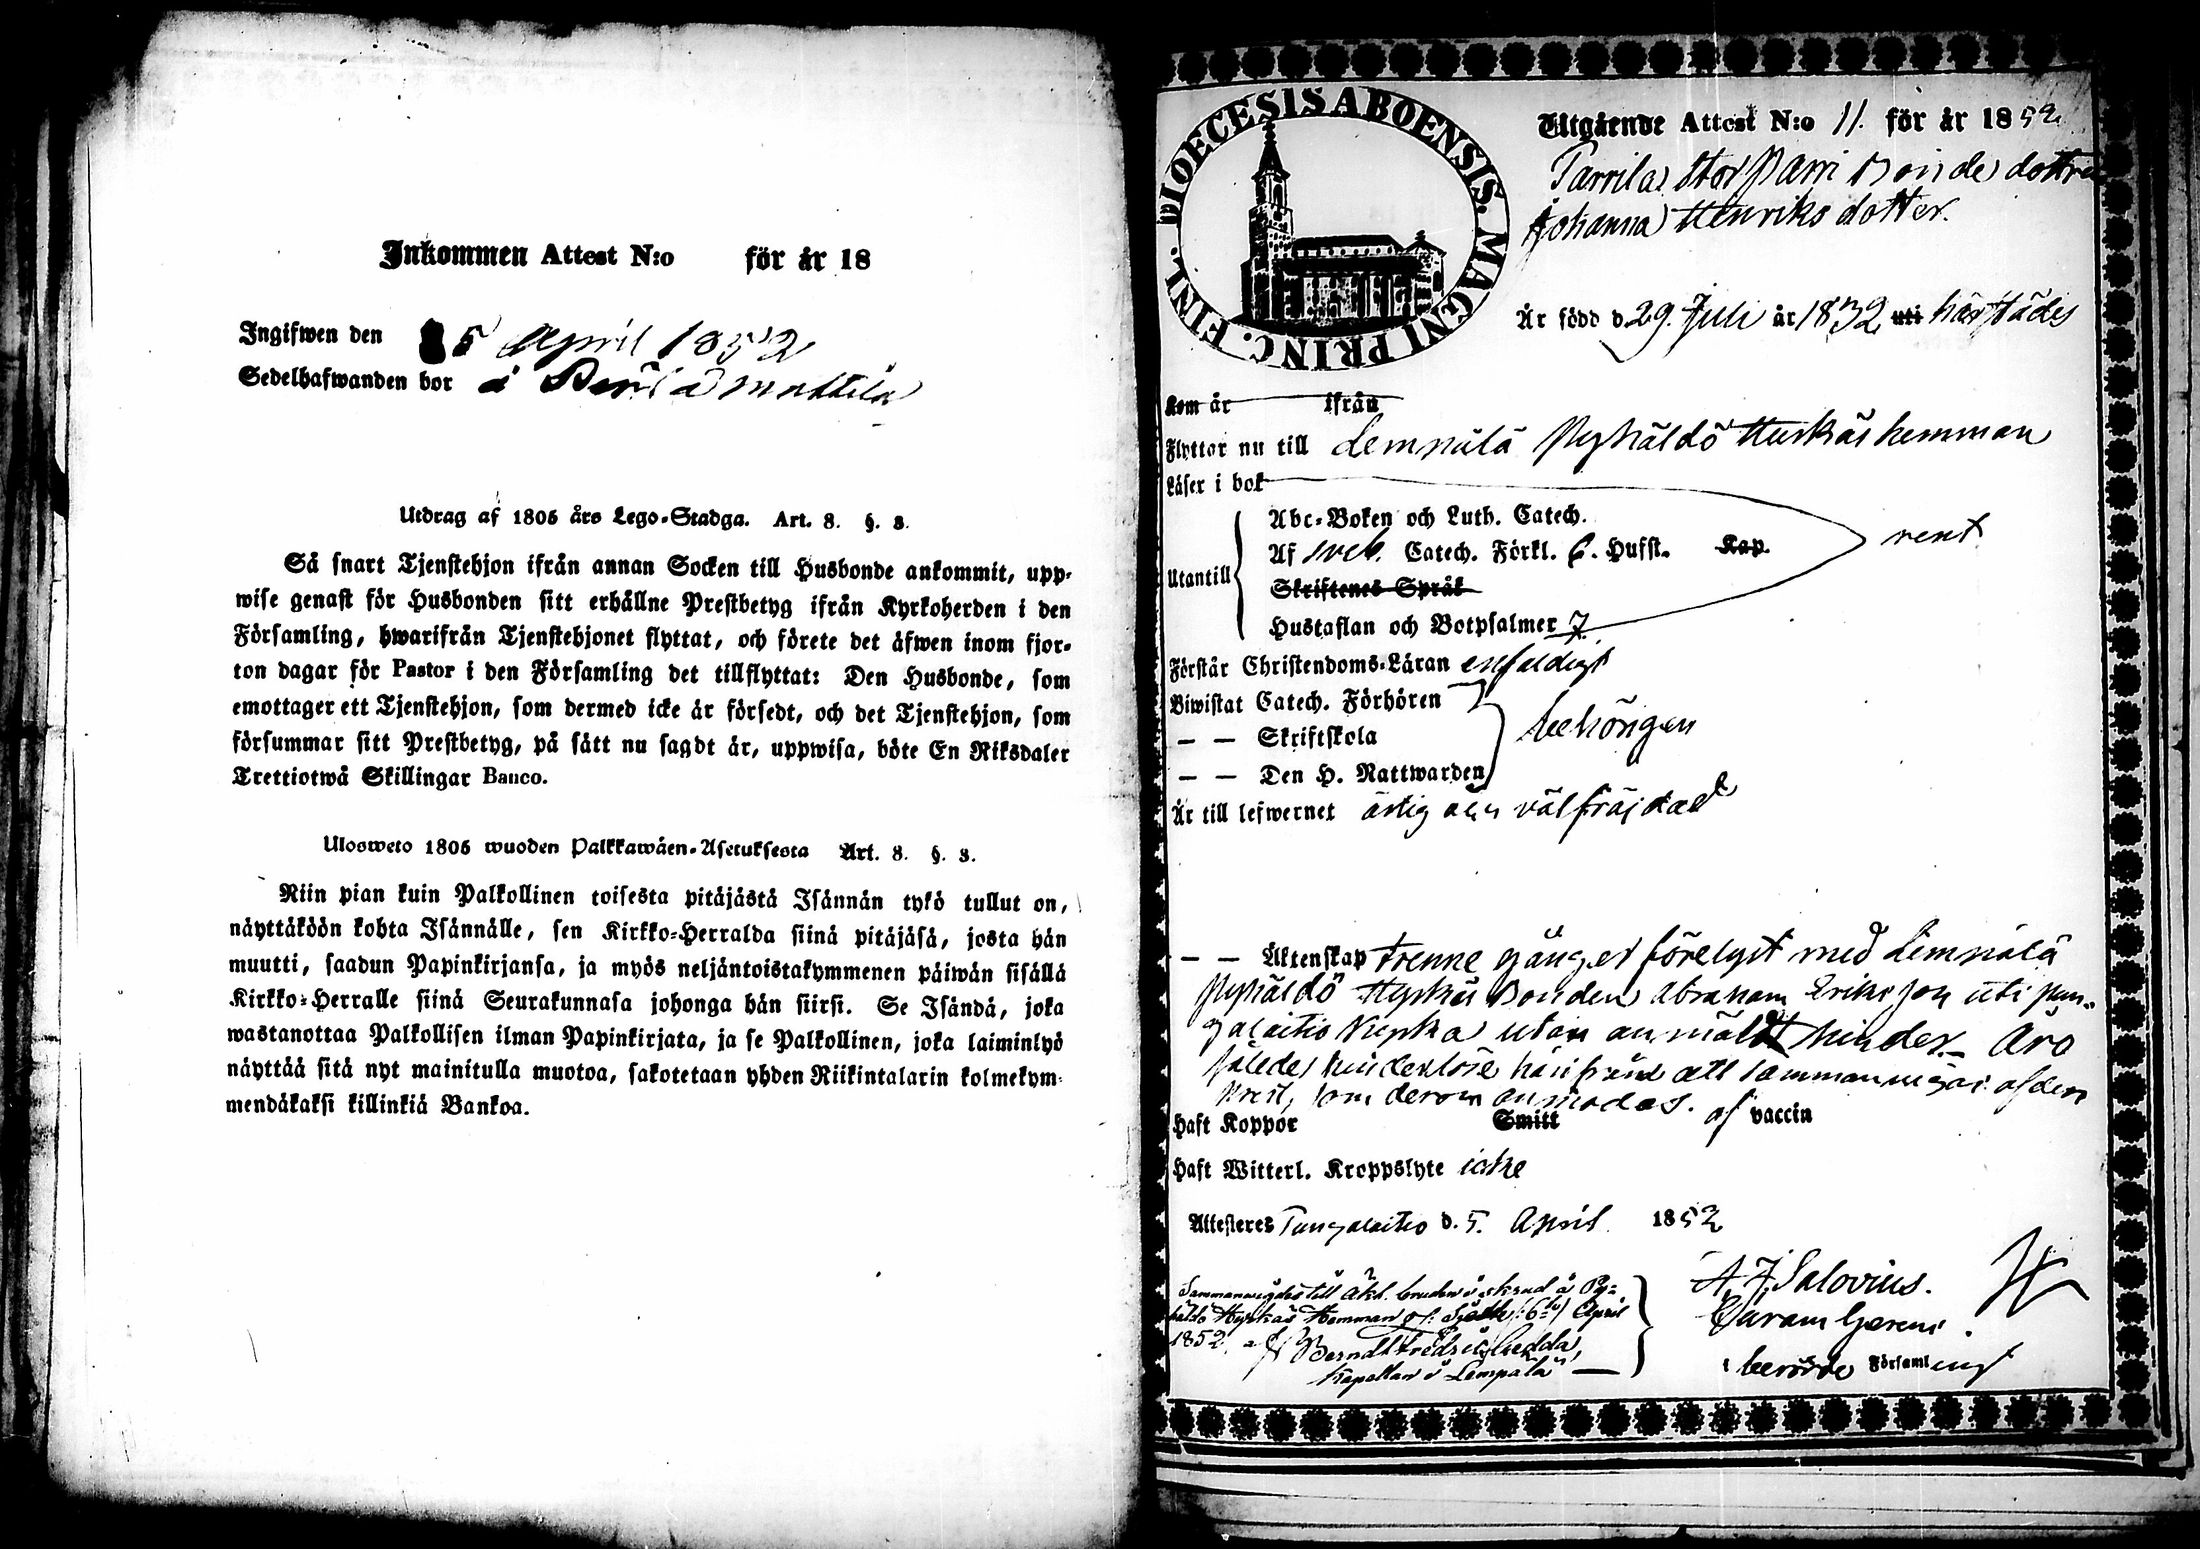 Inkommen Attest N:o för år 18
Ingifwen den 5 April 1852
Sedelhafwanden bor å mattila
Utdrag af 1805 års Lego-Stadga. Art. 8. §. 3.
Så snart Tjenstehjon ifrån annan Socken till Husbonde ankommit, upp-
wise genast för Husbonden sitt erhållne Prestbetyg ifrån Kyrkoherden i den
Församling, hwarifrån Tjenstehjonet flyttat, och förete det äfwen inom fjor-
ton dagar för Pastor i den Församling det tillflyttat: Den Husbonde, som
emottager ett Tjenstehjon, som dermed icke är försedt, och det Tjenstehjon, som
försummar sitt Prestbetyg, på sätt nu sagdt är, uppwisa, böte En Riksdaler
Trettiotwå Skillingar Banco.
Ulosweto 1805 wuoden Palkkawäen-Asetuksesta Art. 8. §. 3.
Niin pian kuin Palkollinen toisesta pitäjästä Isännän tykö tullut on,
näyttäköön kohta Isännälle, sen Kirkko-Herralda siinä pitäjäsä, josta hän
muutti, saadun Papinkirjansa, ja myös neljäntoistakymmenen päiwän sisällä
Kirkko-Herralle siinä Seurakunnasa johonga hän siirsi. Se Isändä, joka
wastanottaa Palkollisen ilman Papinkirjata, ja se Palkollinen, joka laiminlyö
näyttää sitä nyt mainitulla muotoa, sakotetaan yhden Riikintalarin kolmekym-
mendäkaksi killinkiä Bankoa.
DIOECESIS ABOENSIS. MAGNI PRINC. FINL.
Utgående Attest N:o 11. för år 1852
Parrila Stor Parri Bonde dottren
Johanna Henriks dotter.
Är född d. 29. Juli år 1832 uti härstädes
Kom år ifrån
Flyttar nu till Lempälä Pyhäldö hemman
Läser i bok
Abc-Boken och Luth. Catech.
Utantill Af sveb. Catech. Förkl. 6. Hufst. Kap. rent
Skriftenes Språk
Hustaflan och Botpsalmer 7
Förstår Christendoms-Läran enfaldigt
Biwistat Catech. Förhören
— — Skriftskola behörigen
— — Den H. Nattwarden
Är till lefwernet ärlig och välfräjdad
— — Äktenskap trenne gånger förelyst med Lempälä
Pyhäldö Bonden Abraham Eriksson uti Pun-
galaitio Kyrka utan anmäldt hinder. Äro
således hinderlöse härifrån att sammanvigas af den
Prest, som derom anmodas.
Haft Koppor Smitt af vaccin
Haft Witterl. Kroppslyte icke
Attesteres Pungalaitio d. 5. April 1852
Sammanvigdes till Äkt. brudevi å Py-
häldö Hemman 6te April
1852 af Berndt Fredric
Kapellan i Lempälä
A. J. Salovius.
i berörde Församling